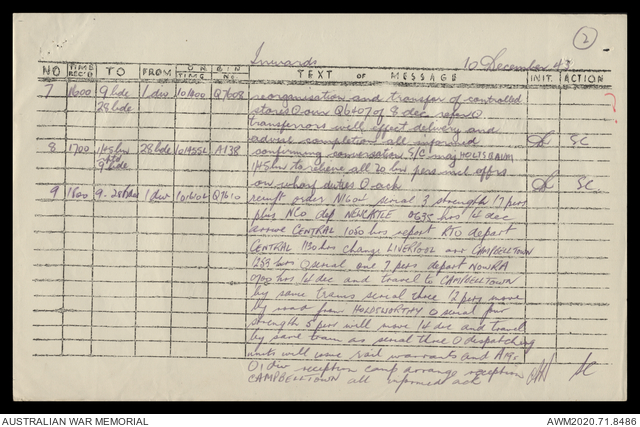 2
Inwards 10 December 43
NO TIME REC'D TO FROM ORIGIN TIME NO TEXT OF MESSAGE INIT. ACTION
7 1600 9 bde 1 div 101400 Q7608 reorganisation and transfer of controlled
28 bde stores O our Q6407 of 8 dec refers O
transferors will effect delivery and
advise completion all informed
8 1700 28 bde A138 confirming conversation S/C maj HOLTSBAUM SC
9 bde to relieve all 20 hrs pers incl offrs
on wharf duties O ack SC
9 1800 9.28 bde 1 div Q7610 order serial 3 strength 17 pers
plus NCO dep NEWCASTLE 0635 hrs 14 dec
arrive CENTRAL 1050 hrs report RTO depart
CENTRAL 1130 hrs change LIVERPOOL arr CAMPBELLTOWN
1253 hrs O serial one 7 pers depart NOWRA
0700 hrs 14 dec and travel to CAMPBELLTOWN
by same train serial three 12 pers move
by road from HOLDSWORTHY O serial four
strength 5 pers will move 14 dec and travel
by same train as serial three O despatching
units will issue rail warrants and
O 1 div reception camp arrange reception
CAMPBELLTOWN all informed ack SC
AUSTRALIAN WAR MEMORIAL AWM2020.71.8486